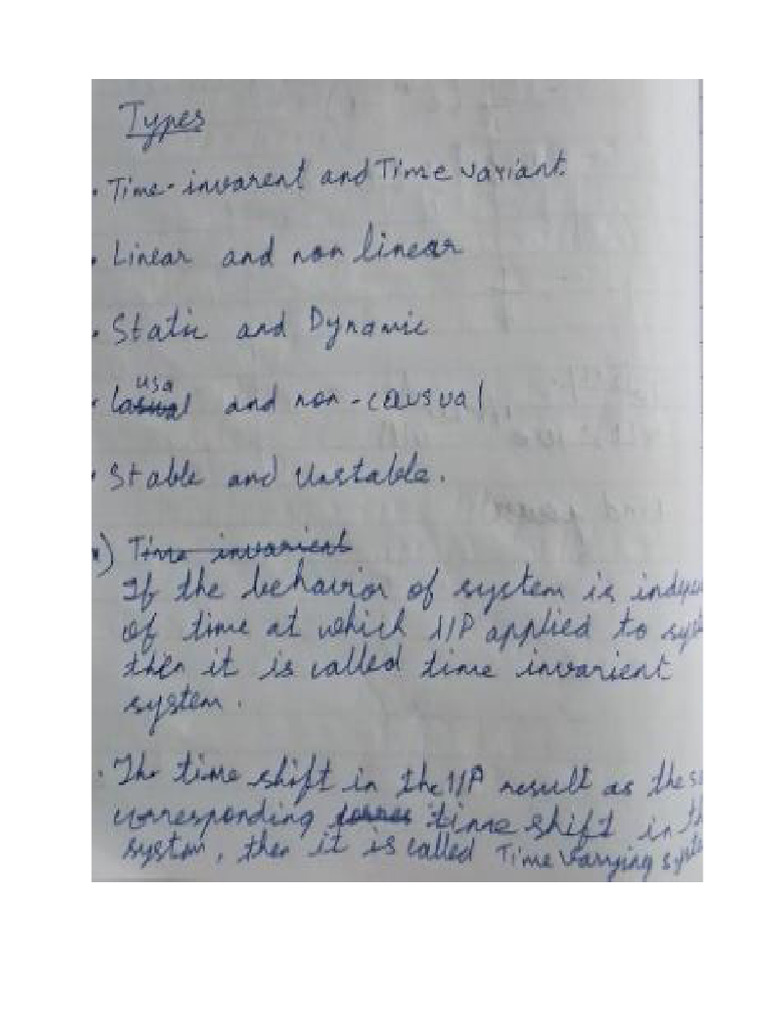 Types
. Time-invarent and Time variant.
. Linear and non linear
. Static and Dynamic
. Causal and non-causual
. Stable and Unstable.
) Time invarient
If the behavior of system is indepen
of time at which I/P applied to syst
then it is called time invarient
system.
. The time shift in the I/P result as these
corresponding time shift in th
system, then it is called Time Varying syste